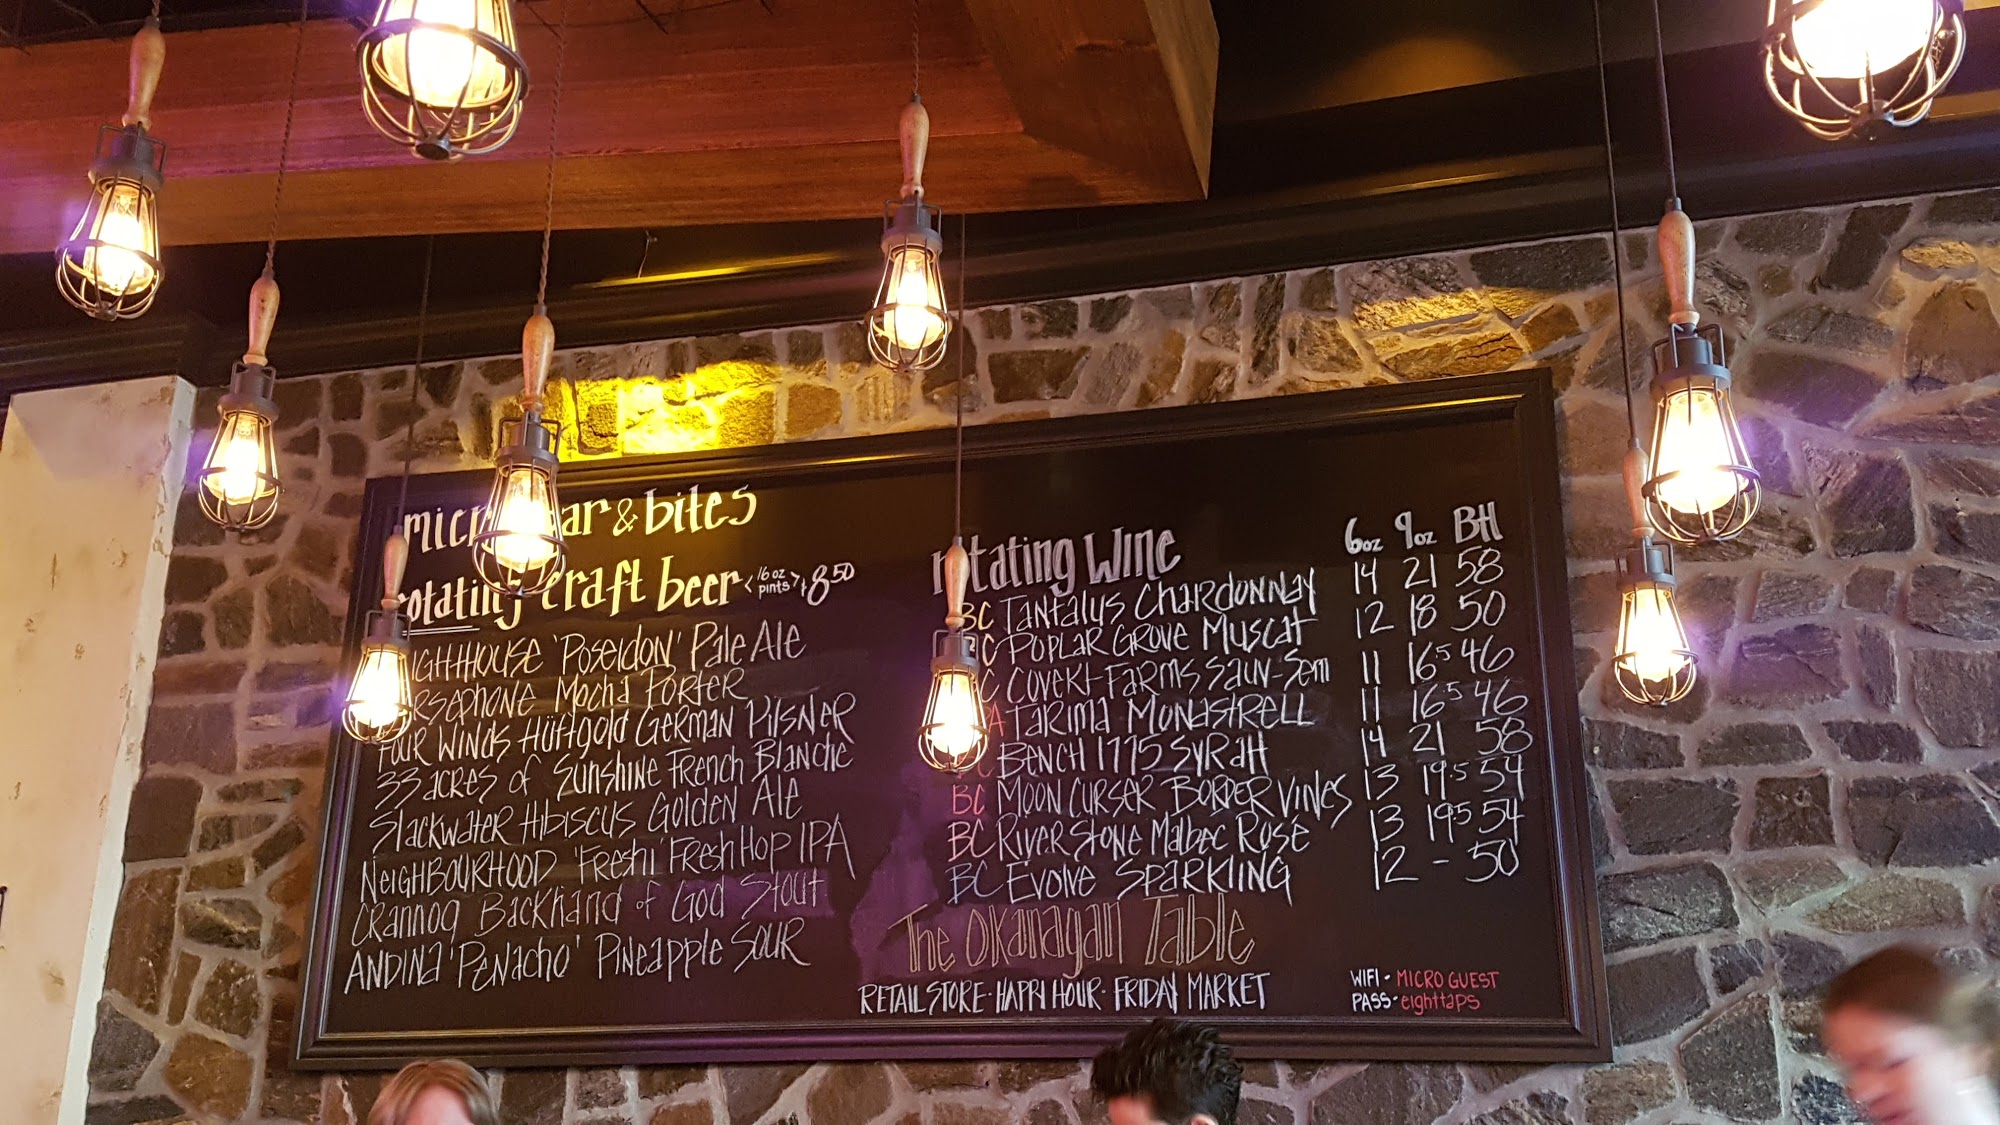 micro bar & bites
rotating craft beer <16 oz pints> +8.50
LIGHTHOUSE 'Poseidon' Pale Ale
Persephone Mocha Porter
Four Winds Hüftgold German Pilsner
33 acres of Sunshine French Blanche
Slackwater Hibiscus Golden Ale
NEIGHBOURHOOD 'Fresh!' Fresh Hop IPA
Crannog Backhand of God Stout
ANDINA 'Penacho' Pineapple SOUR
rotating Wine 6oz 9oz BH
BC Tantalus Chardonnay 14 21 58
BC Poplar Grove Muscat 12 18 50
C Covert Farms Sauv-Sem 11 16.5 46
A Tarima Monastrell 11 16.5 46
C Bench 1775 Syrah 14 21 58
BC Moon Curser Border Vines 13 19.5 54
BC River Stone Malbec Rosé 13 19.5 54
BC Evolve Sparkling 12 - 50
The Okanagan Table
RETAIL STORE · HAPPY HOUR · FRIDAY MARKET
WIFI - MICRO GUEST
PASS - eighttaps